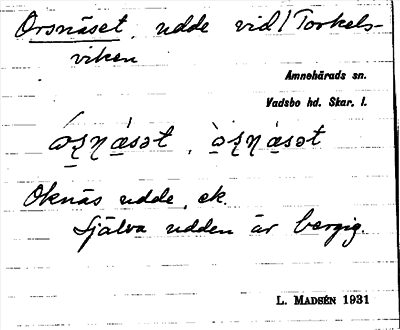 Orsnäset, udde vid Torkels-
viken
Amnehärads sn.
Vadsbo hd. Skar. l.
Oknäs udde, ek.
Själva udden är bergig.
L. MADSÉN 1931